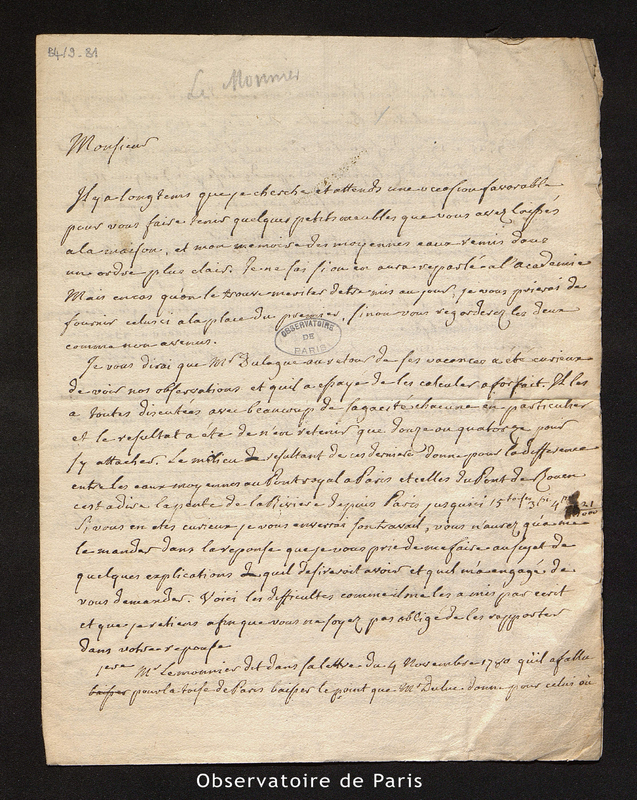 B4/9-81
Le Monnier
Monsieur
Il y a longtems que je cherche et attends une occasion favorable
pour vous faire tenir quelques petits meubles que vous avez laissés
a la maison, et mon memoire des moyennes eaux remis dans
un ordre plus clair. Je ne sas si on en aura reparlé a l'academie
Mais en cas qu'on le trouve meriter detre mis au jour, je vous prierai de
fournir celui ci a la place du premier, sinon vous regarderez les deux
comme non avenus.
OBSERVATOIRE DE PARIS
Je vous dirai que Mr Dulague au retour de ses vacances a eté curieux
de voir nos observations et quil a essayé de les calculer a forfait. Il les
a toutes discutées avec beaucoup de sagacité chacune en particulier
et le resultat a été de n'en retenir que douze ou quatorze pour
s'y attacher. Le milieu resultant de ces dernieres donne pour la difference
entre les eaux moyennes au Pont royal a Paris et celles du Pont de Rouen
cest a dire la pente de la Riviere depuis Paris jusqu'ici 15 toises 3 pi 4 po
Si vous en etes curieux je vous enverrai son travail, vous n'aurez qu'a me
le mander dans la reponse que je vous prie de me faire au sujet de
quelques explications quil desireroit avoir et quil m'a engagé de
vous demander. Voici les difficultés comme il me les a mis par ecrit
et que je retiens afin que vous ne soyez pas obligé de les rapporter
dans votre reponse
1ere Mr Lemonnier dit dans sa lettre du 4 Novembre 1780 qu'il a fallu
baisser pour la toise de Paris baisser le point que Mr Duluc donne pour celui où
Observatoire de Paris